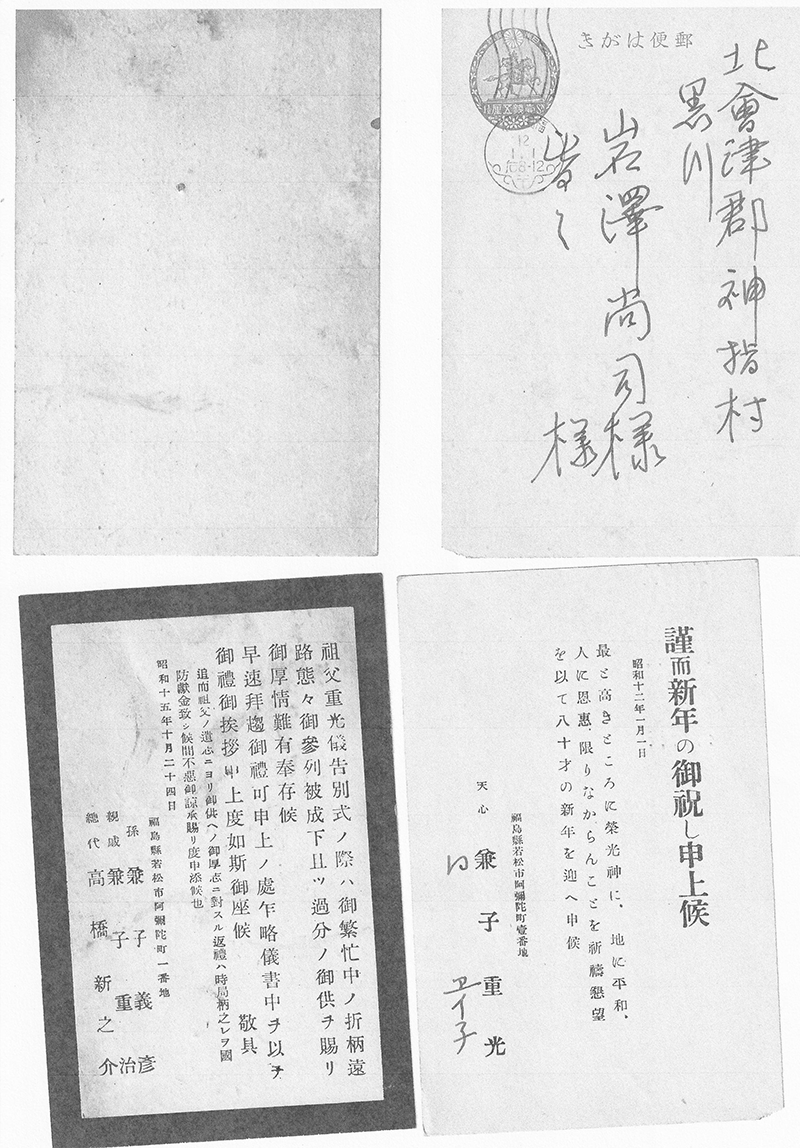 郵便はがき
12
1.1
北會津郡神指村
黒川
岩澤尚司様
皆々様
謹而新年の御祝し申上候
昭和十二年一月一日
最と高きところに榮光神に、地に平和、
人に恩惠、限りなからんことを祈禱懇望
を以て八十才の新年を迎へ申候
福島縣若松市阿彌陀町壹番地
天心 兼子重光
祖父重光儀告別式ノ際ハ御繁忙中ノ折柄遠
路態々御參列被成下且ツ過分ノ御供ヲ賜リ
御厚情難有奉存候
早速拜趨御禮可申上ノ處乍略儀書中ヲ以テ
御禮御挨拶申上度如斯御座候 敬具
追而祖父ノ遺志ニヨリ御供ヘノ御厚志ニ對スル返禮ハ時局柄之レヲ國
防獻金致シ候間不惡御諒承賜リ度申添候也
昭和十五年十月二十四日
福島縣若松市阿彌陀町一番地
孫 兼子義彦
親戚 兼子重治
總代 高橋新之介